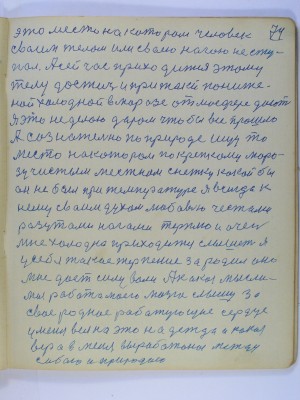 74
это место на котором человек
своим телом или своею ногою не сту-
пал. А сейчас приходится этому
телу достичь и при такой пониже-
ной холодной в морозе атмосфере
я это не делаю даром чтобы все прошло
А сознательно по природе ищу то
место на котором по крепкому моро-
зу чистым местном снежку какой бы
он не был при температуре я всегда к
нему своим духом любовью честными
разутыми ногами терплю и очень
мне холодно приходится слышать я
у себя такое терпение зародил оно
мне дает силу воли А какая мысли-
мы работала мозги слышу за
свое родное работующие сердце
у меня были на это надежда а какая
вера в меня выработана между
собою и природою